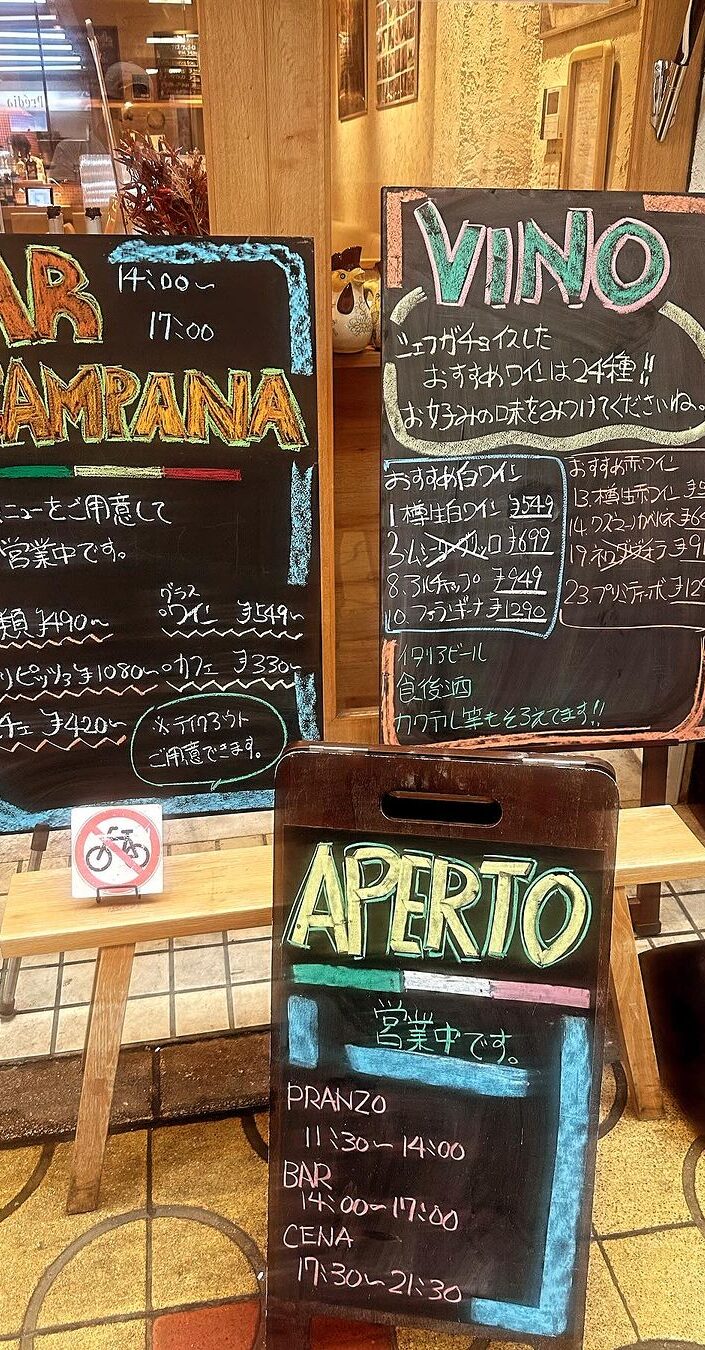 AR
14:00〜
17:00
CAMPANA
ニューをご用意して
営業中です。
類 ¥490〜
グラス
ワイン ¥549〜
リピッツァ ¥1080〜
カフェ ¥330〜
チェ ¥420〜
※テイクアウト
ご用意できます。
VINO
シェフがチョイスした
おすすめワインは24種!!
お好みの味をみつけてくださいね。
おすすめ白ワイン
1 樽生白ワイン ¥549
3. ¥699
8. ¥949
10. ファランギーナ ¥1290
おすすめ赤ワイン
13. 樽生赤ワイン
14.
19.
23. プリミティーボ
イタリアビール
食後酒
カクテル等もそろえてます!!
APERTO
営業中です。
PRANZO
11:30〜14:00
BAR
14:00〜17:00
CENA
17:30〜21:30